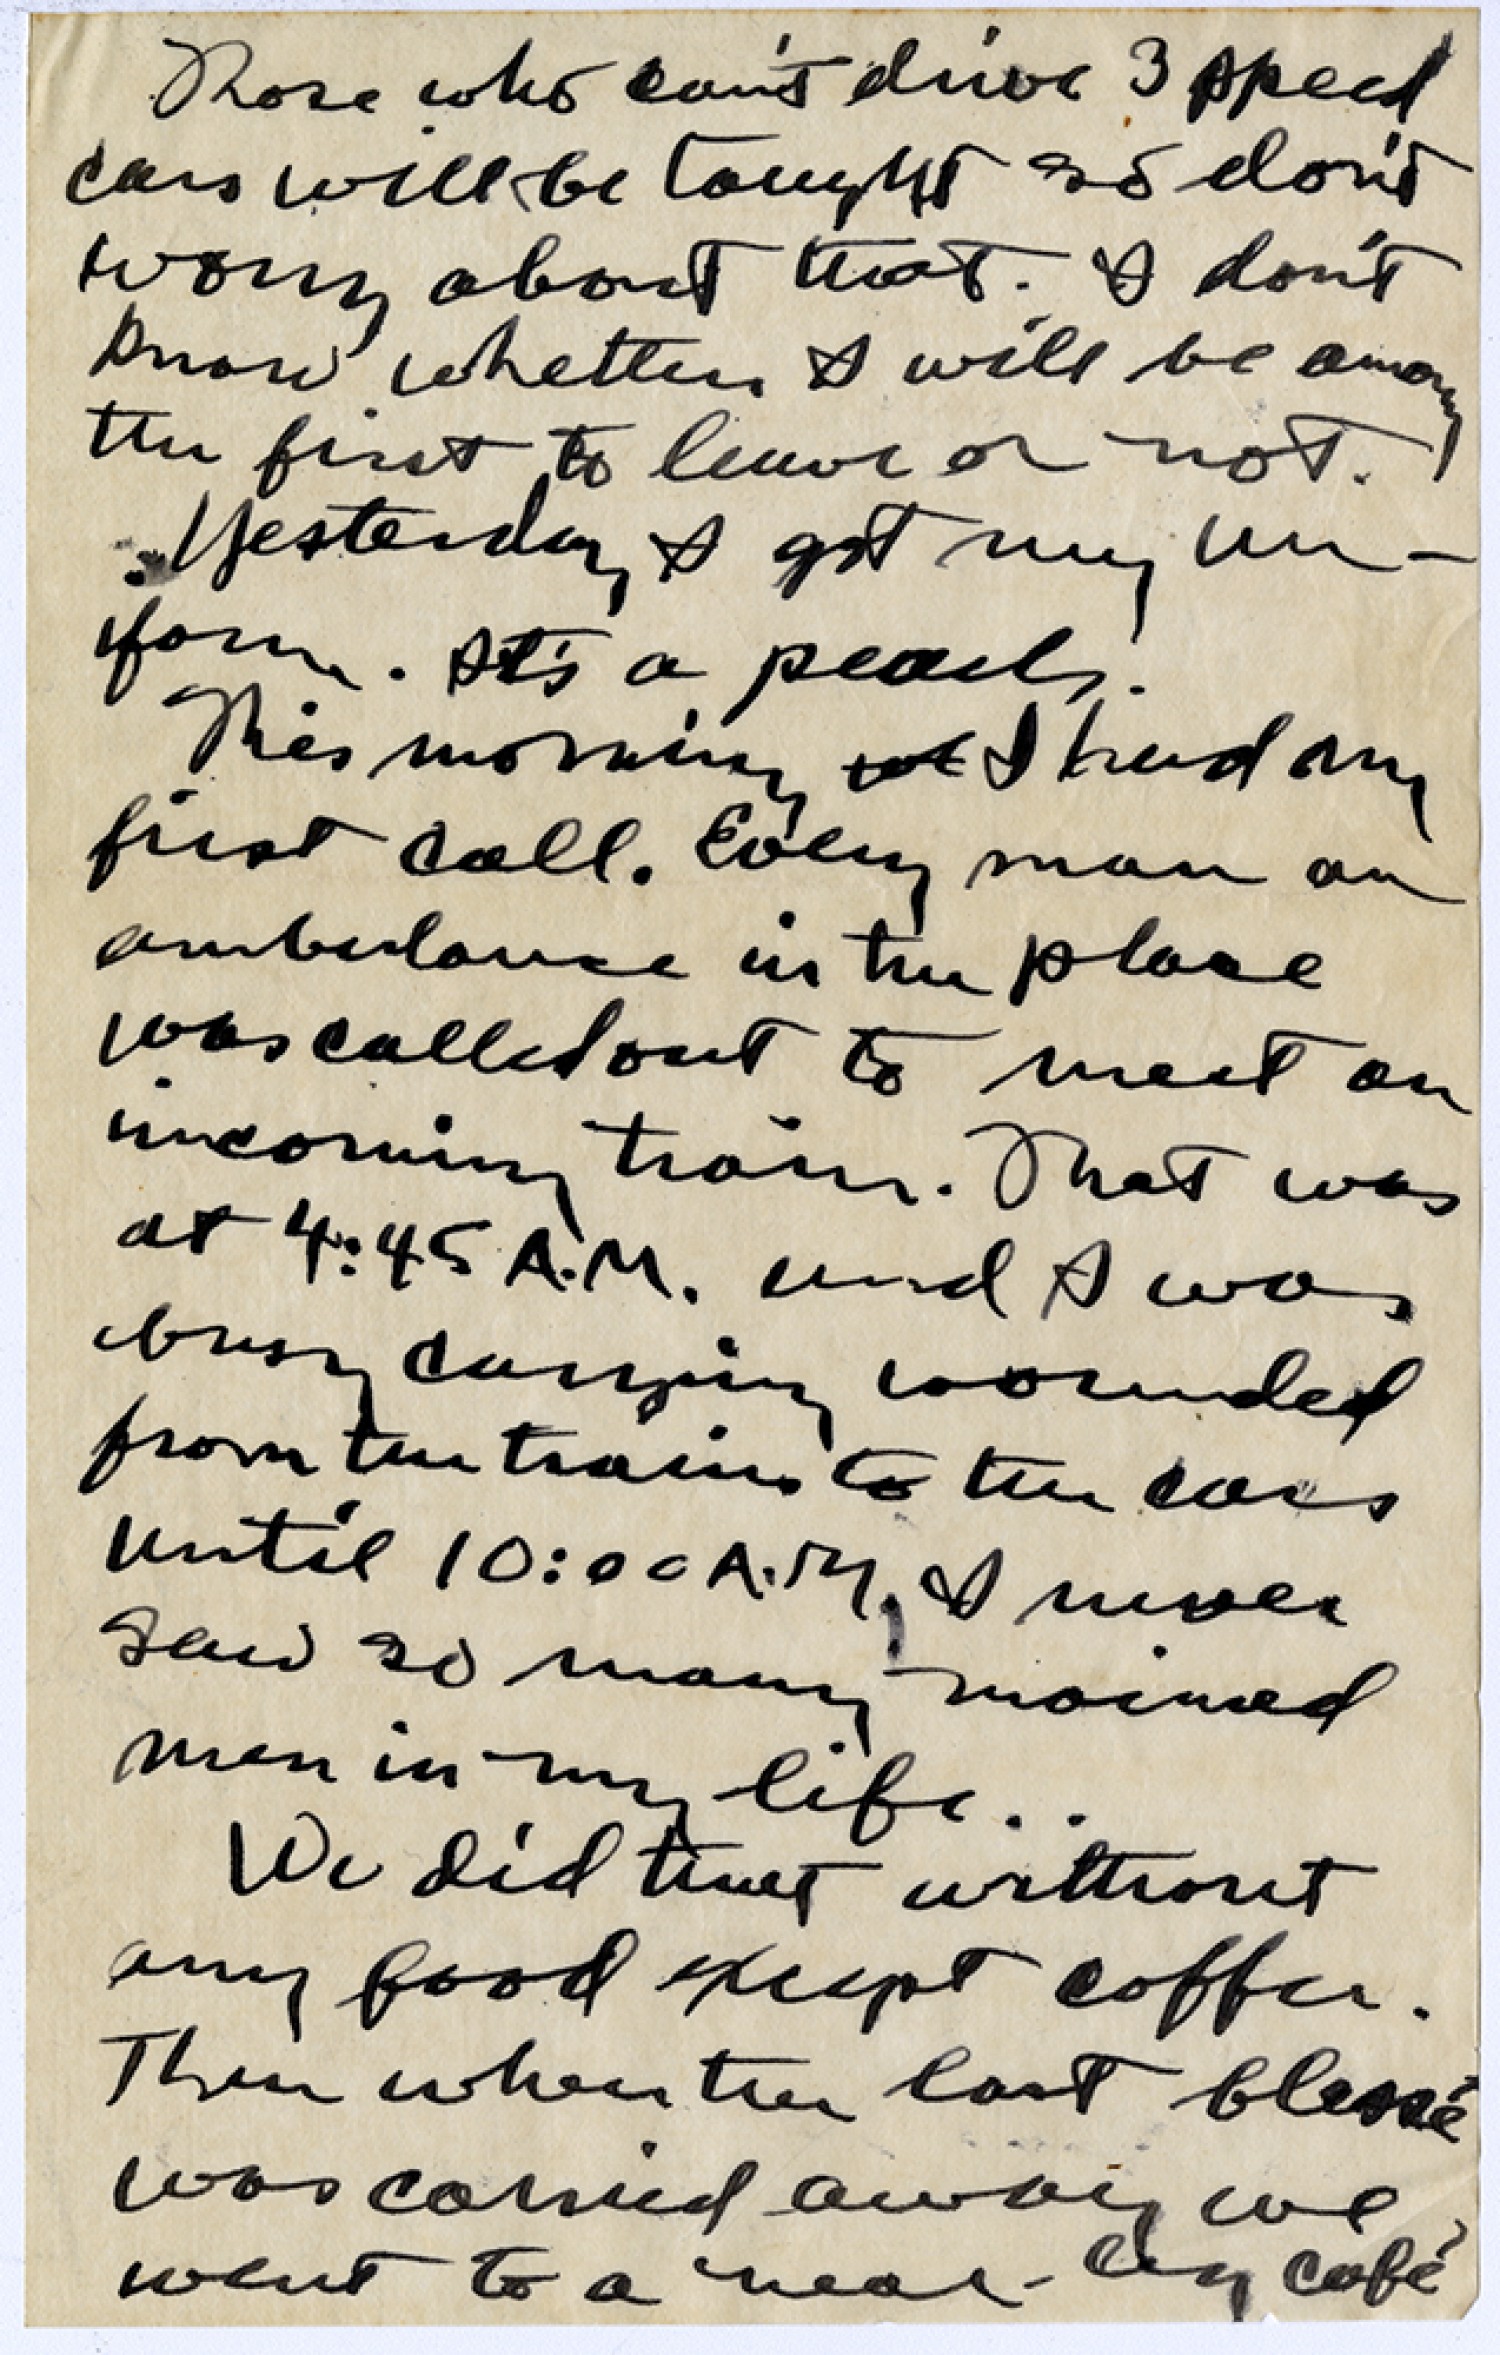 Those who can't drive 3 speed
cars will be taught so don't
worry about that. I don't
know whether I will be among
the first to leave or not.
Yesterday I got my un-
iform. It's a peach.
This morning we I had my
first call. Every man on
ambulance in the place
was called out to meet an
incoming train. That was
at 4:45 A.M. and I was
busy carrying wounded
from the trains to the cars
until 10:00 A.M. I never
saw so many maimed
men in my life..
We did that without
any food except coffee.
Then when the last blessé
was carried away we
went to a near-by café